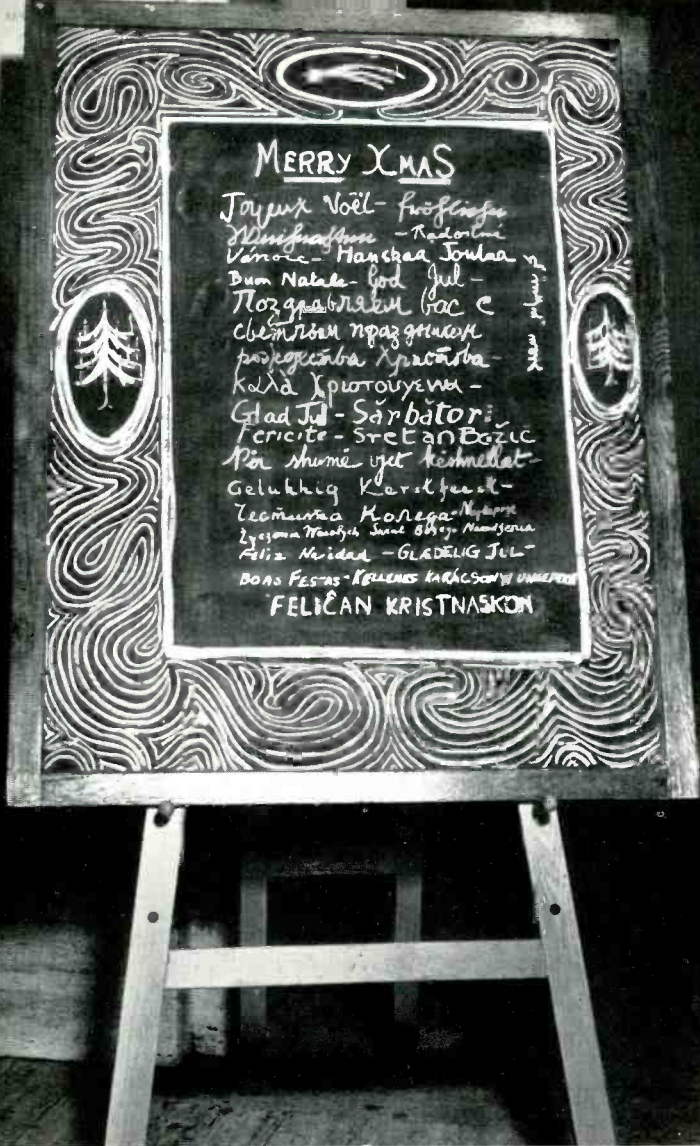 MERRY XMAS
Joyeux Noël - fröhliche
Weihnachten - Radostné
Vánoce - Hauskaa Joulua
Buon Natale - God Jul -
Поздравляем вас с
светлым праздником
рождества Христова -
Καλά Χριστούγεννα -
Glad Jul - Sărbători
Fericite - Sretan Božić
Për shumë vjet këshnellat -
Gelukkig Kerstfeest -
Честита Коледа - Najlepsze
Życzenia Wesołych Świąt Bożego Narodzenia
Feliz Navidad - GLÆDELIG JUL -
BOAS FESTAS - KELLEMES KARÁCSONYI
FELIĈAN KRISTNASKON